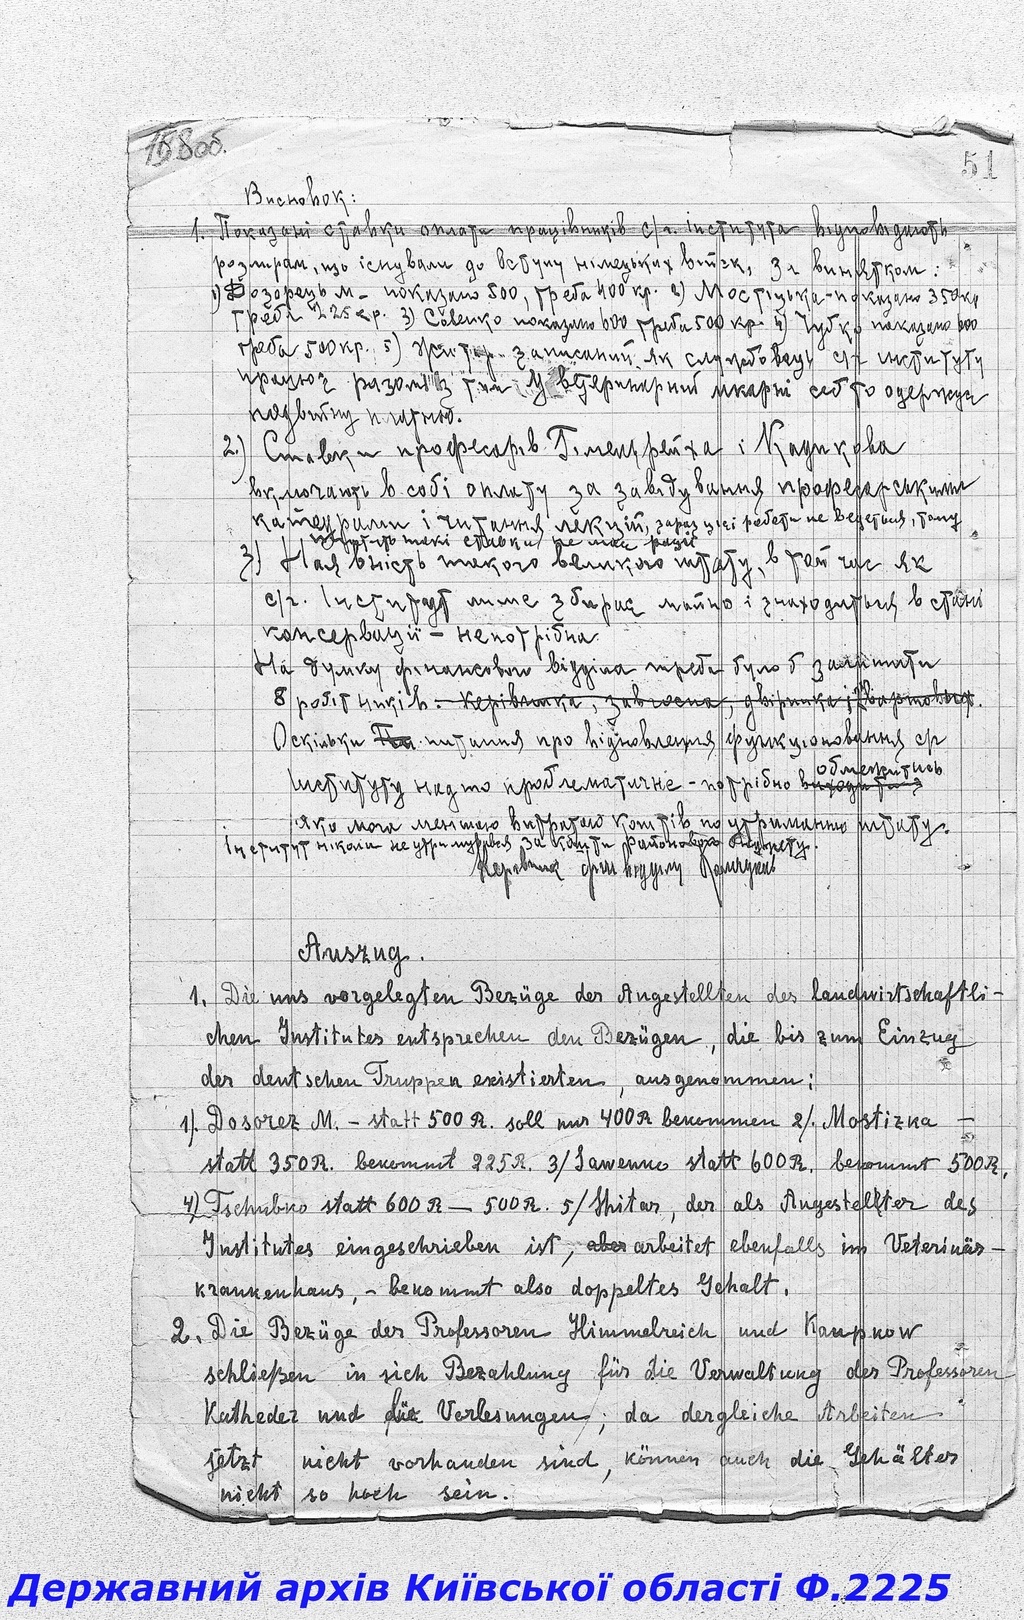 158 об.
51
Висновок:
1. Показані ставки оплати працівників с/г. інститута відповідають
розмірам, що існували до вступу німецьких військ, за винятком:
1) Дозорець М – показано 500, треба 400 кр. 2) Мостіцька – показано 350 кр
треба 225 кр. 3) Савенко показано 600 треба 500 кр. 4) Чубко показано 600
треба 500 кр. 5) Житар записаний як службовець с/г інституту
працює разом з тим у ветеринарній лікарні себто одержує
подвійну платню.
2.) Ставки професорів Гімельрейха і
включають в собі оплату за завідування професорськими
катедрами і читання лекцій, зараз ці роботи не ведеться, тому
такі ставки не має рації
3) Наявність такого великого штату, в той час як
с/г. Інститут лише збирає майно і знаходиться в стані
консервації – непотрібна
На думку фінансового відділа треба було б залишити
8 робітників. – керівника, завгоспа, двірника і вартових.
Оскільки питання про відновлення функціонування с/г
Інституту надто проблематичне – потрібно обмежитись
яко мога меншою витратою коштів по утриманню штату.
Інститут ніколи не утримувався за кошти районового бюджету.
Керівник фін відділу
Auszug.
1. Die uns vorgelegten Bezüge der Angestellten des landwirtschaftli-
chen Institutes entsprechen den Bezügen, die bis zum Einzug
der deutschen Truppen existierten, ausgenommen:
1/. Dosorez M. – statt 500 R. soll nur 400 R bekommen 2/. Mostizka –
statt 350 R. bekommt 225 R. 3/ Sawenko statt 600 R. bekommt 500 R,
4) Tschubko statt 600 R – 500 R. 5/ Shitar, der als Angestellter des
Institutes eingeschrieben ist, aber arbeitet ebenfalls im Veterinär-
krankenhaus, – bekommt also doppeltes Gehalt.
2. Die Bezüge der Professoren Himmelreich und
schließen in sich Bezahlung für die Verwaltung der Professoren-
Katheder und für Vorlesungen; da dergleiche Arbeiten
jetzt nicht vorhanden sind, können auch die Gehälter
nicht so hoch sein.
Державний архів Київської області Ф.2225